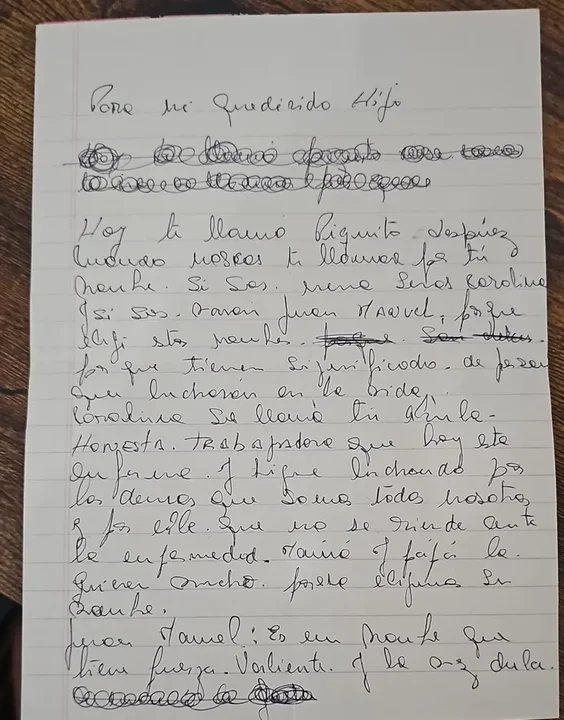 Para mi quedirido Hijo
Hoy te llamo Piquito despúez
cuando nascas te llamas por tú
nombe. Si sos nena Seras Carolina
y si sos. varon Juan Manuel, porque
eligi estos nombes.
por que tienen significado. de
que lucharón en la vida.
Carolina se llama tu abuela-
Honesta. TRABAJADORA que hoy esta
enferma. y sigue luchando por
los demas que somos todos nosotros
y por elle. que no se rinde ante
la enfermedad. Mamá y papá la
quieren mucho. por eso elijimos su
nombe.
Juan Manuel: Es un nombe que
tiene fuerza. Valiente. y la